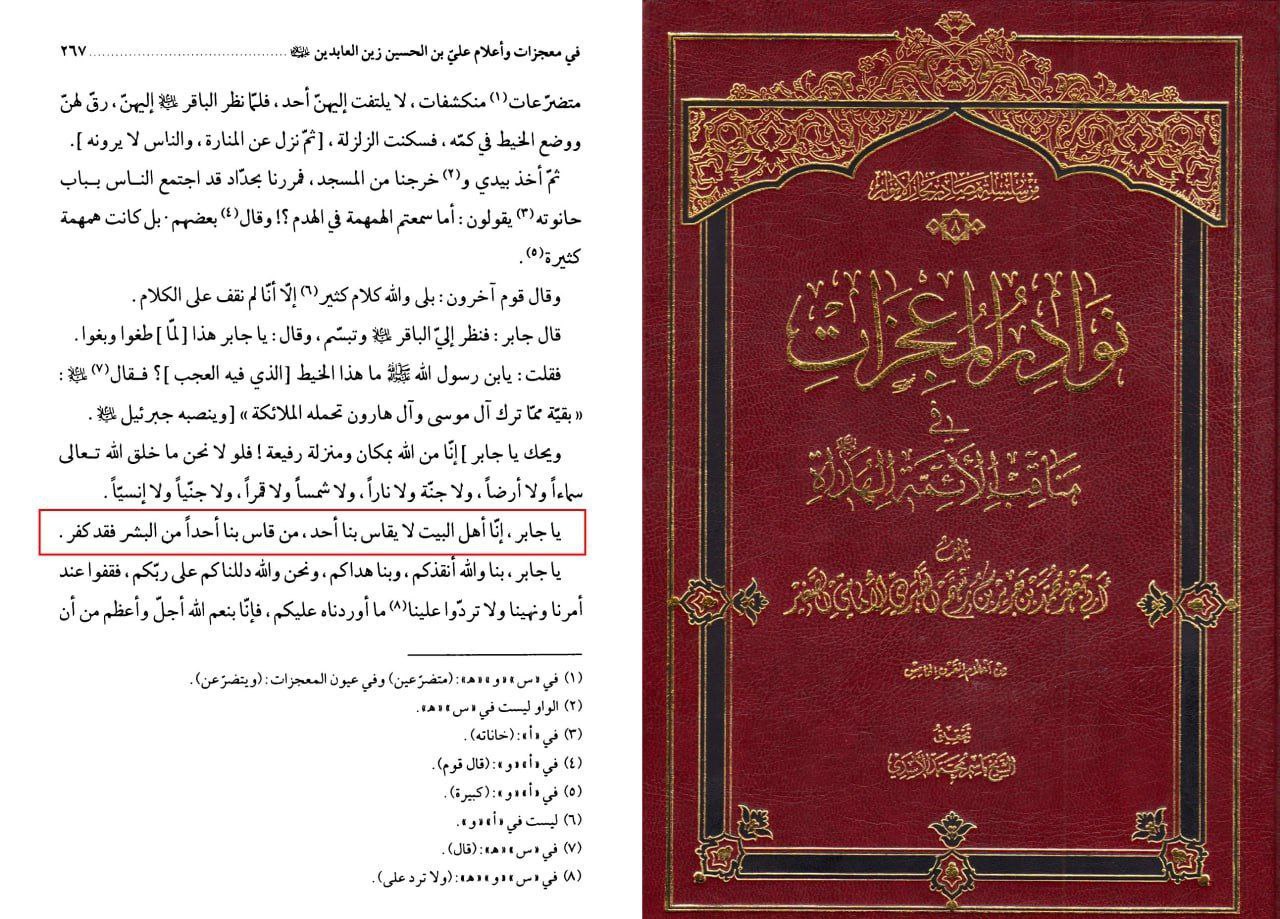 في معجزات وأعلام عليّ بن الحسين زين العابدين ﷺ ........................................ ٢٦٧
متضرّعات(١) منكشفات ، لا يلتفت إليهنّ أحد ، فلمّا نظر الباقر ﷺ إليهنّ ، رقّ لهنّ
ووضع الخيط في كمّه ، فسكنت الزلزلة ، [ثمّ نزل عن المنارة ، والناس لا يرونه ].
ثمّ أخذ بيدي و(٢) خرجنا من المسجد ، فمررنا بحدّاد قد اجتمع الناس بباب
حانوته(٣) يقولون : أما سمعتم الهمهمة في الهدم ؟! وقال(٤) بعضهم · بل كانت همهمة
كثيرة(٥).
وقال قوم آخرون : بلى والله كلام كثير(٦) إلّا أنّا لم نقف على الكلام .
قال جابر : فنظر إليّ الباقر ﷺ وتبسّم ، وقال : يا جابر هذا [لمّا ] طغوا وبغوا .
فقلت : يابن رسول الله ﷺ ما هذا الخيط [الذي فيه العجب ]؟ فقال(٧) ﷺ :
« بقيّة ممّا ترك آل موسى وآل هارون تحمله الملائكة » [وينصبه جبرئيل ﷺ .
ويحك يا جابر ] إنّا من الله بمكان ومنزلة رفيعة ! فلو لا نحن ما خلق الله تعالى
سماءاً ولا أرضاً ، ولا جنّة ولا ناراً ، ولا شمساً ولا قمراً ، ولا جنّياً ولا إنسيّاً .
يا جابر ، إنّا أهل البيت لا يقاس بنا أحد ، من قاس بنا أحداً من البشر فقد كفر .
يا جابر ، بنا والله أنقذكم ، وبنا هداكم ، ونحن والله دللناكم على ربّكم ، فقفوا عند
أمرنا ونهينا ولا تردّوا علينا(٨) ما أوردناه عليكم ، فإنّا بنعم الله أجلّ وأعظم من أن
(١) في «س» «و» «هـ»: (متضرّعين) وفي عيون المعجزات : (ويتضرّعن).
(٢) الواو ليست في «س» «هـ».
(٣) في «أ»: (خاناته).
(٤) في «أ» «و»: (قال قوم).
(٥) في «أ» «و»: (كبيرة).
(٦) ليست في «أ» «و».
(٧) في «س» «هـ»: (قال).
(٨) في «س» «و» «هـ»: (ولا ترد على).
من سلسلة مصادر بحار الأنوار
٨
نَوَادِرُ المُعْجِزَاتِ
فِي
مَنَاقِبِ الأَئِمَّةِ الهُدَاةِ
تأليف
أبي جعفر محمد بن جرير بن رستم الطبري الإمامي الصغير
من أعلام القرن الخامس
تحقيق
الشيخ باسم محمد الأسدي